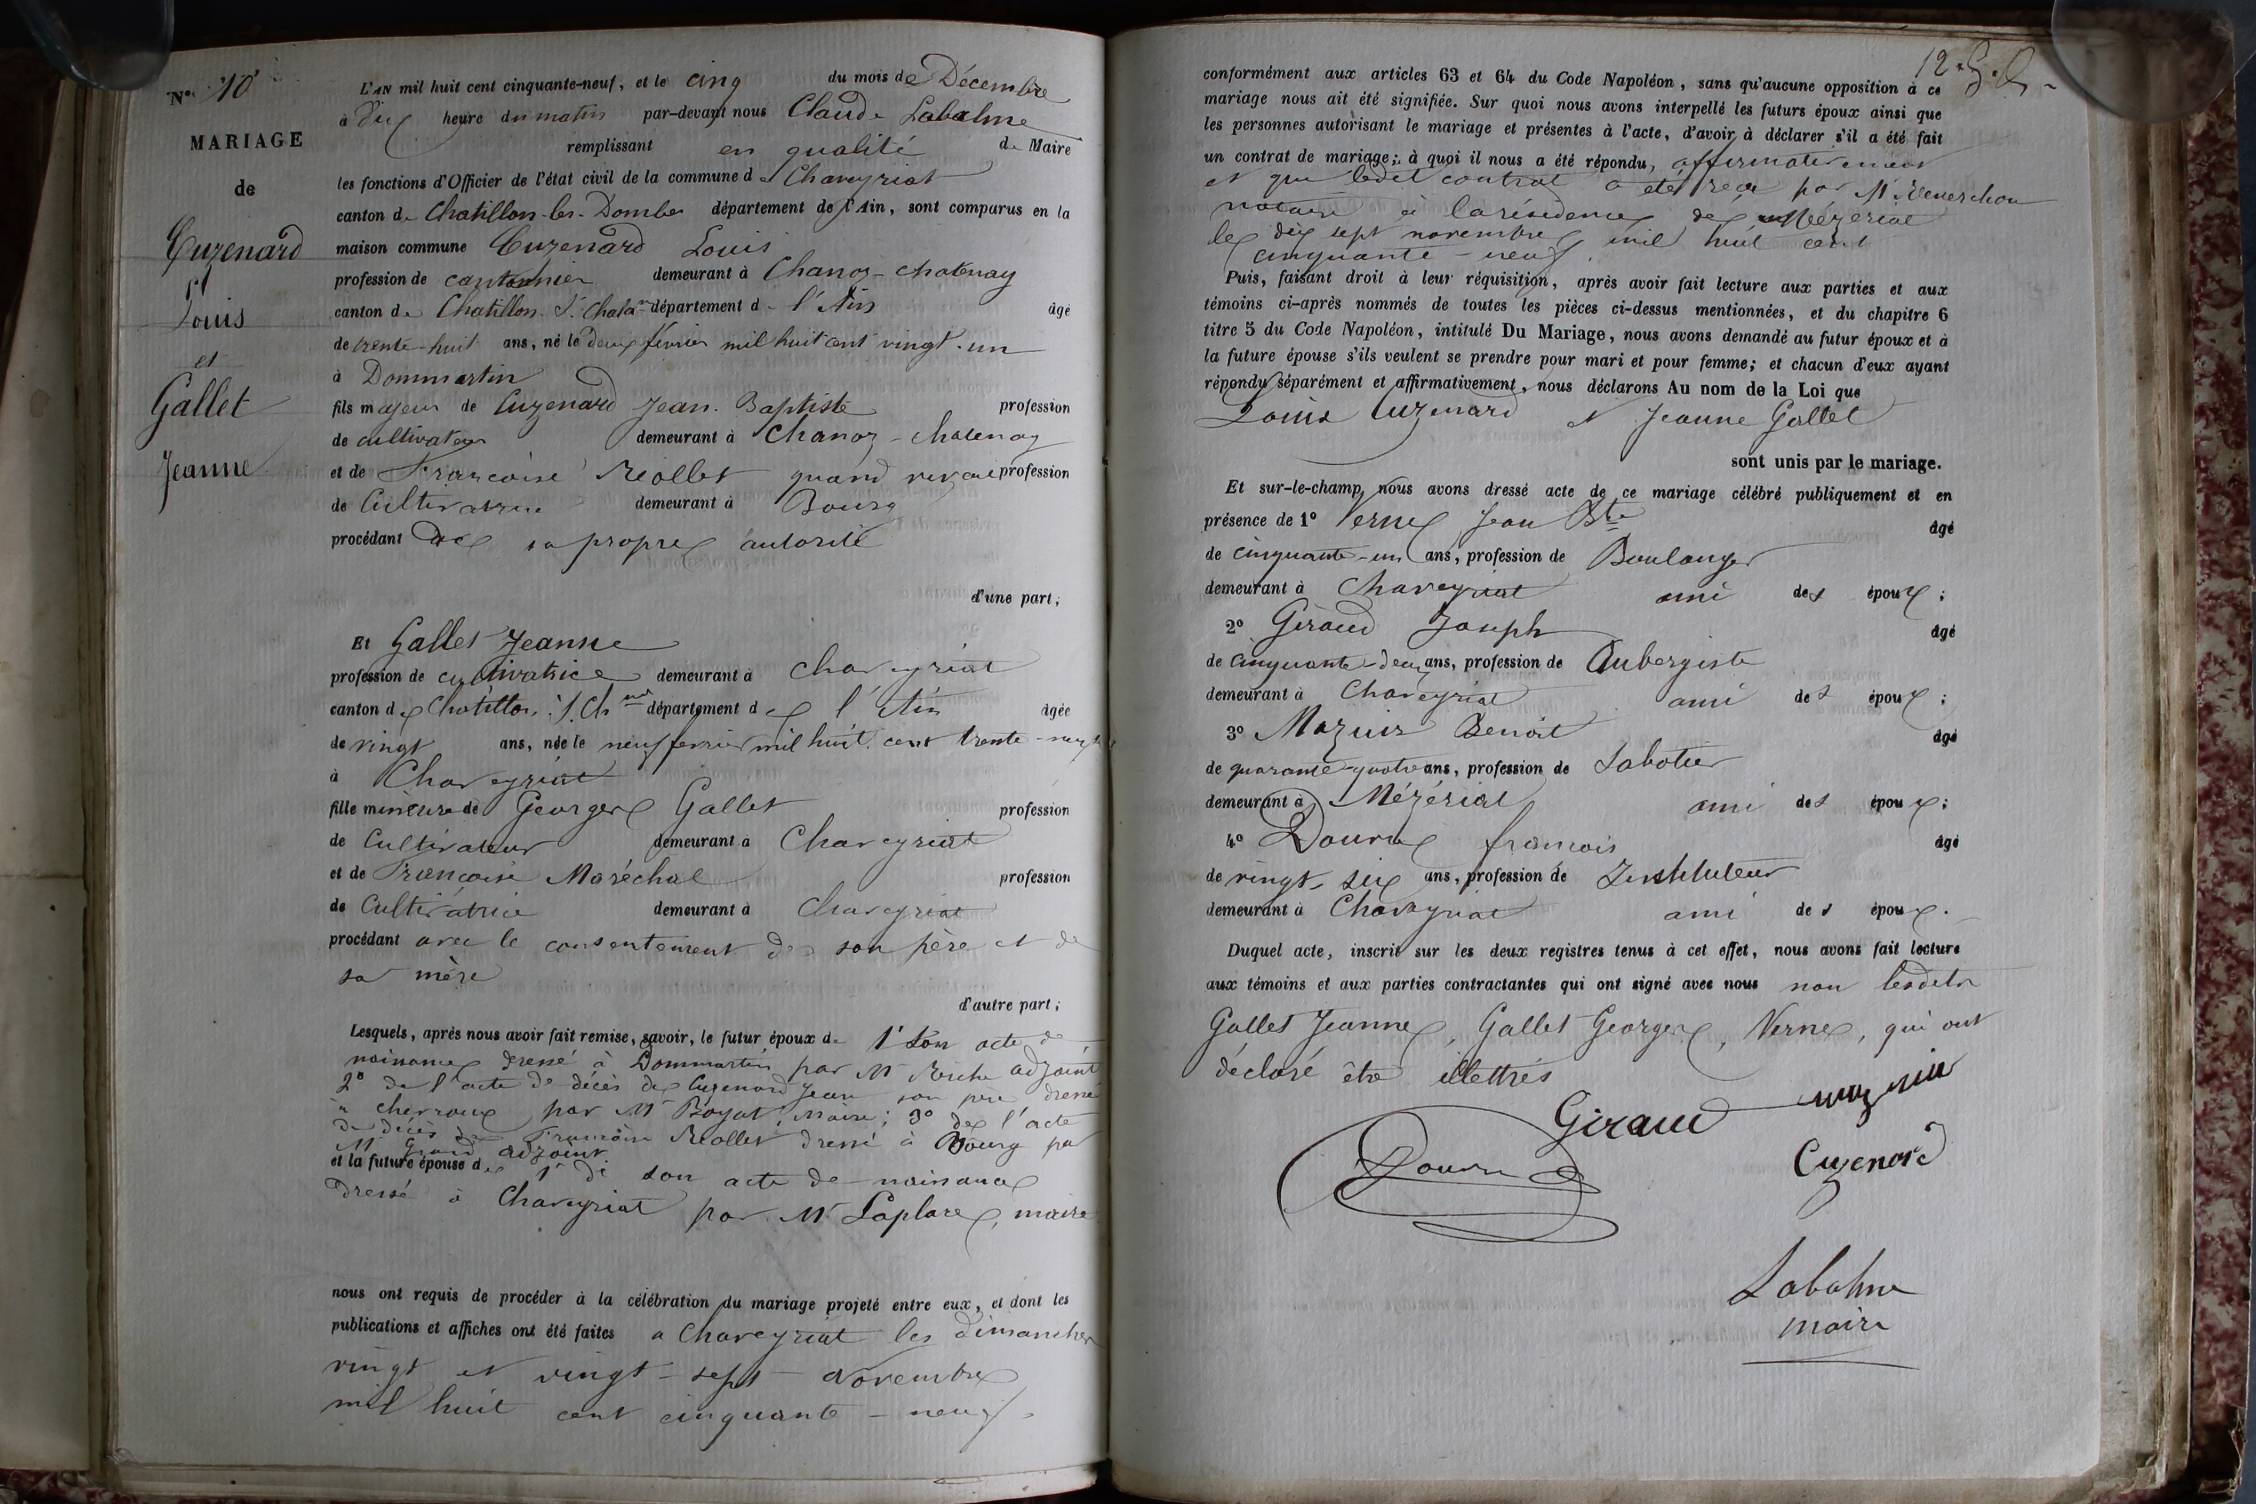 N° 10
MARIAGE
de
Cuzenard
Louis
et
Gallet
Jeanne
L'AN mil huit cent cinquante-neuf, et le cinq du mois de Décembre
à dix heure du matin par-devant nous Claude Labalme
remplissant en qualité de Maire
les fonctions d'Officier de l'état civil de la commune de Chaveyriat
canton de Chatillon-les-Dombes département de l'Ain, sont comparus en la
maison commune Cuzenard Louis
profession de cantonnier demeurant à Chanoz-chatenay
canton de Chatillon S. Chala.ne département de l'Ain âgé
de trente-huit ans, né le deux février mil huit cent vingt-un
à Dommartin
fils majeur de Cuzenard Jean-Baptiste profession
de cultivateur demeurant à Chanoz-chatenay
et de Françoise Réollet quand vivait profession
de Cultivatrice demeurant à Bourg
procédant de sa propre autorité
d'une part;
Et Gallet Jeanne
profession de cultivatrice demeurant à Chaveyriat
canton de Chatillon S. Ch.ne département de l'Ain âgée
de vingt ans, née le neuf fevrier mil huit cent trente-neuf
à Chaveyriat
fille mineure de George Gallet profession
de Cultivateur demeurant à Chaveyriat
et de Françoise Maréchal profession
de Cultivatrice demeurant à Chaveyriat
procédant avec le consentement de son père et de
sa mère
d'autre part;
Lesquels, après nous avoir fait remise, savoir, le futur époux de 1° Son acte de
naissance dressé à Dommartin par Mr Riche adjoint
2° de l'acte de décès de Cuzenard Jean son père dressé
à cherroux par Mr Boyat, Maire; 3° de l'acte
de décès de Françoise Réollet dressé à Bourg par
Mr Grand adjoint.
et la future épouse de 1° de son acte de naissance
dressé à Chaveyriat par Mr Laplace, maire
nous ont requis de procéder à la célébration du mariage projeté entre eux, et dont les
publications et affiches ont été faites a Chaveyriat les dimanches
vingt et vingt-sept Novembre
mil huit cent cinquante-neuf.
12.
conformément aux articles 63 et 64 du Code Napoléon, sans qu'aucune opposition à ce
mariage nous ait été signifiée. Sur quoi nous avons interpellé les futurs époux ainsi que
les personnes autorisant le mariage et présentes à l'acte, d'avoir à déclarer s'il a été fait
un contrat de mariage; à quoi il nous a été répondu, affirmativement
et que ledit contrat a été reçu par Mr Reverchon
notaire à la résidence de Mézériat
le dix sept novembre mil huit cent
cinquante-neuf.
Puis, faisant droit à leur réquisition, après avoir fait lecture aux parties et aux
témoins ci-après nommés de toutes les pièces ci-dessus mentionnées, et du chapitre 6
titre 5 du Code Napoléon, intitulé Du Mariage, nous avons demandé au futur époux et à
la future épouse s'ils veulent se prendre pour mari et pour femme; et chacun d'eux ayant
répondu séparément et affirmativement, nous déclarons Au nom de la Loi que
Louis Cuzenard et Jeanne Gallet
sont unis par le mariage.
Et sur-le-champ nous avons dressé acte de ce mariage célébré publiquement et en
présence de 1° Verne Jean Bte âgé
de cinquante-un ans, profession de Boulanger
demeurant à Chaveyriat ami des époux;
2° Giraud Joseph âgé
de cinquante-deux ans, profession de Aubergiste
demeurant à Chaveyriat ami des époux;
3° Mazuir Benoit âgé
de quarante-quatre ans, profession de Sabotier
demeurant à Mézériat ami des époux;
4° Dourne francois âgé
de vingt-six ans, profession de Instituteur
demeurant à Chaveyriat ami des époux.
Duquel acte, inscrit sur les deux registres tenus à cet effet, nous avons fait lecture
aux témoins et aux parties contractantes qui ont signé avec nous non lesdits
Gallet Jeanne, Gallet George, Verne, qui ont
déclaré être illettrés
Giraud mazuir
Dourne Cuzenard
Labalme
maire